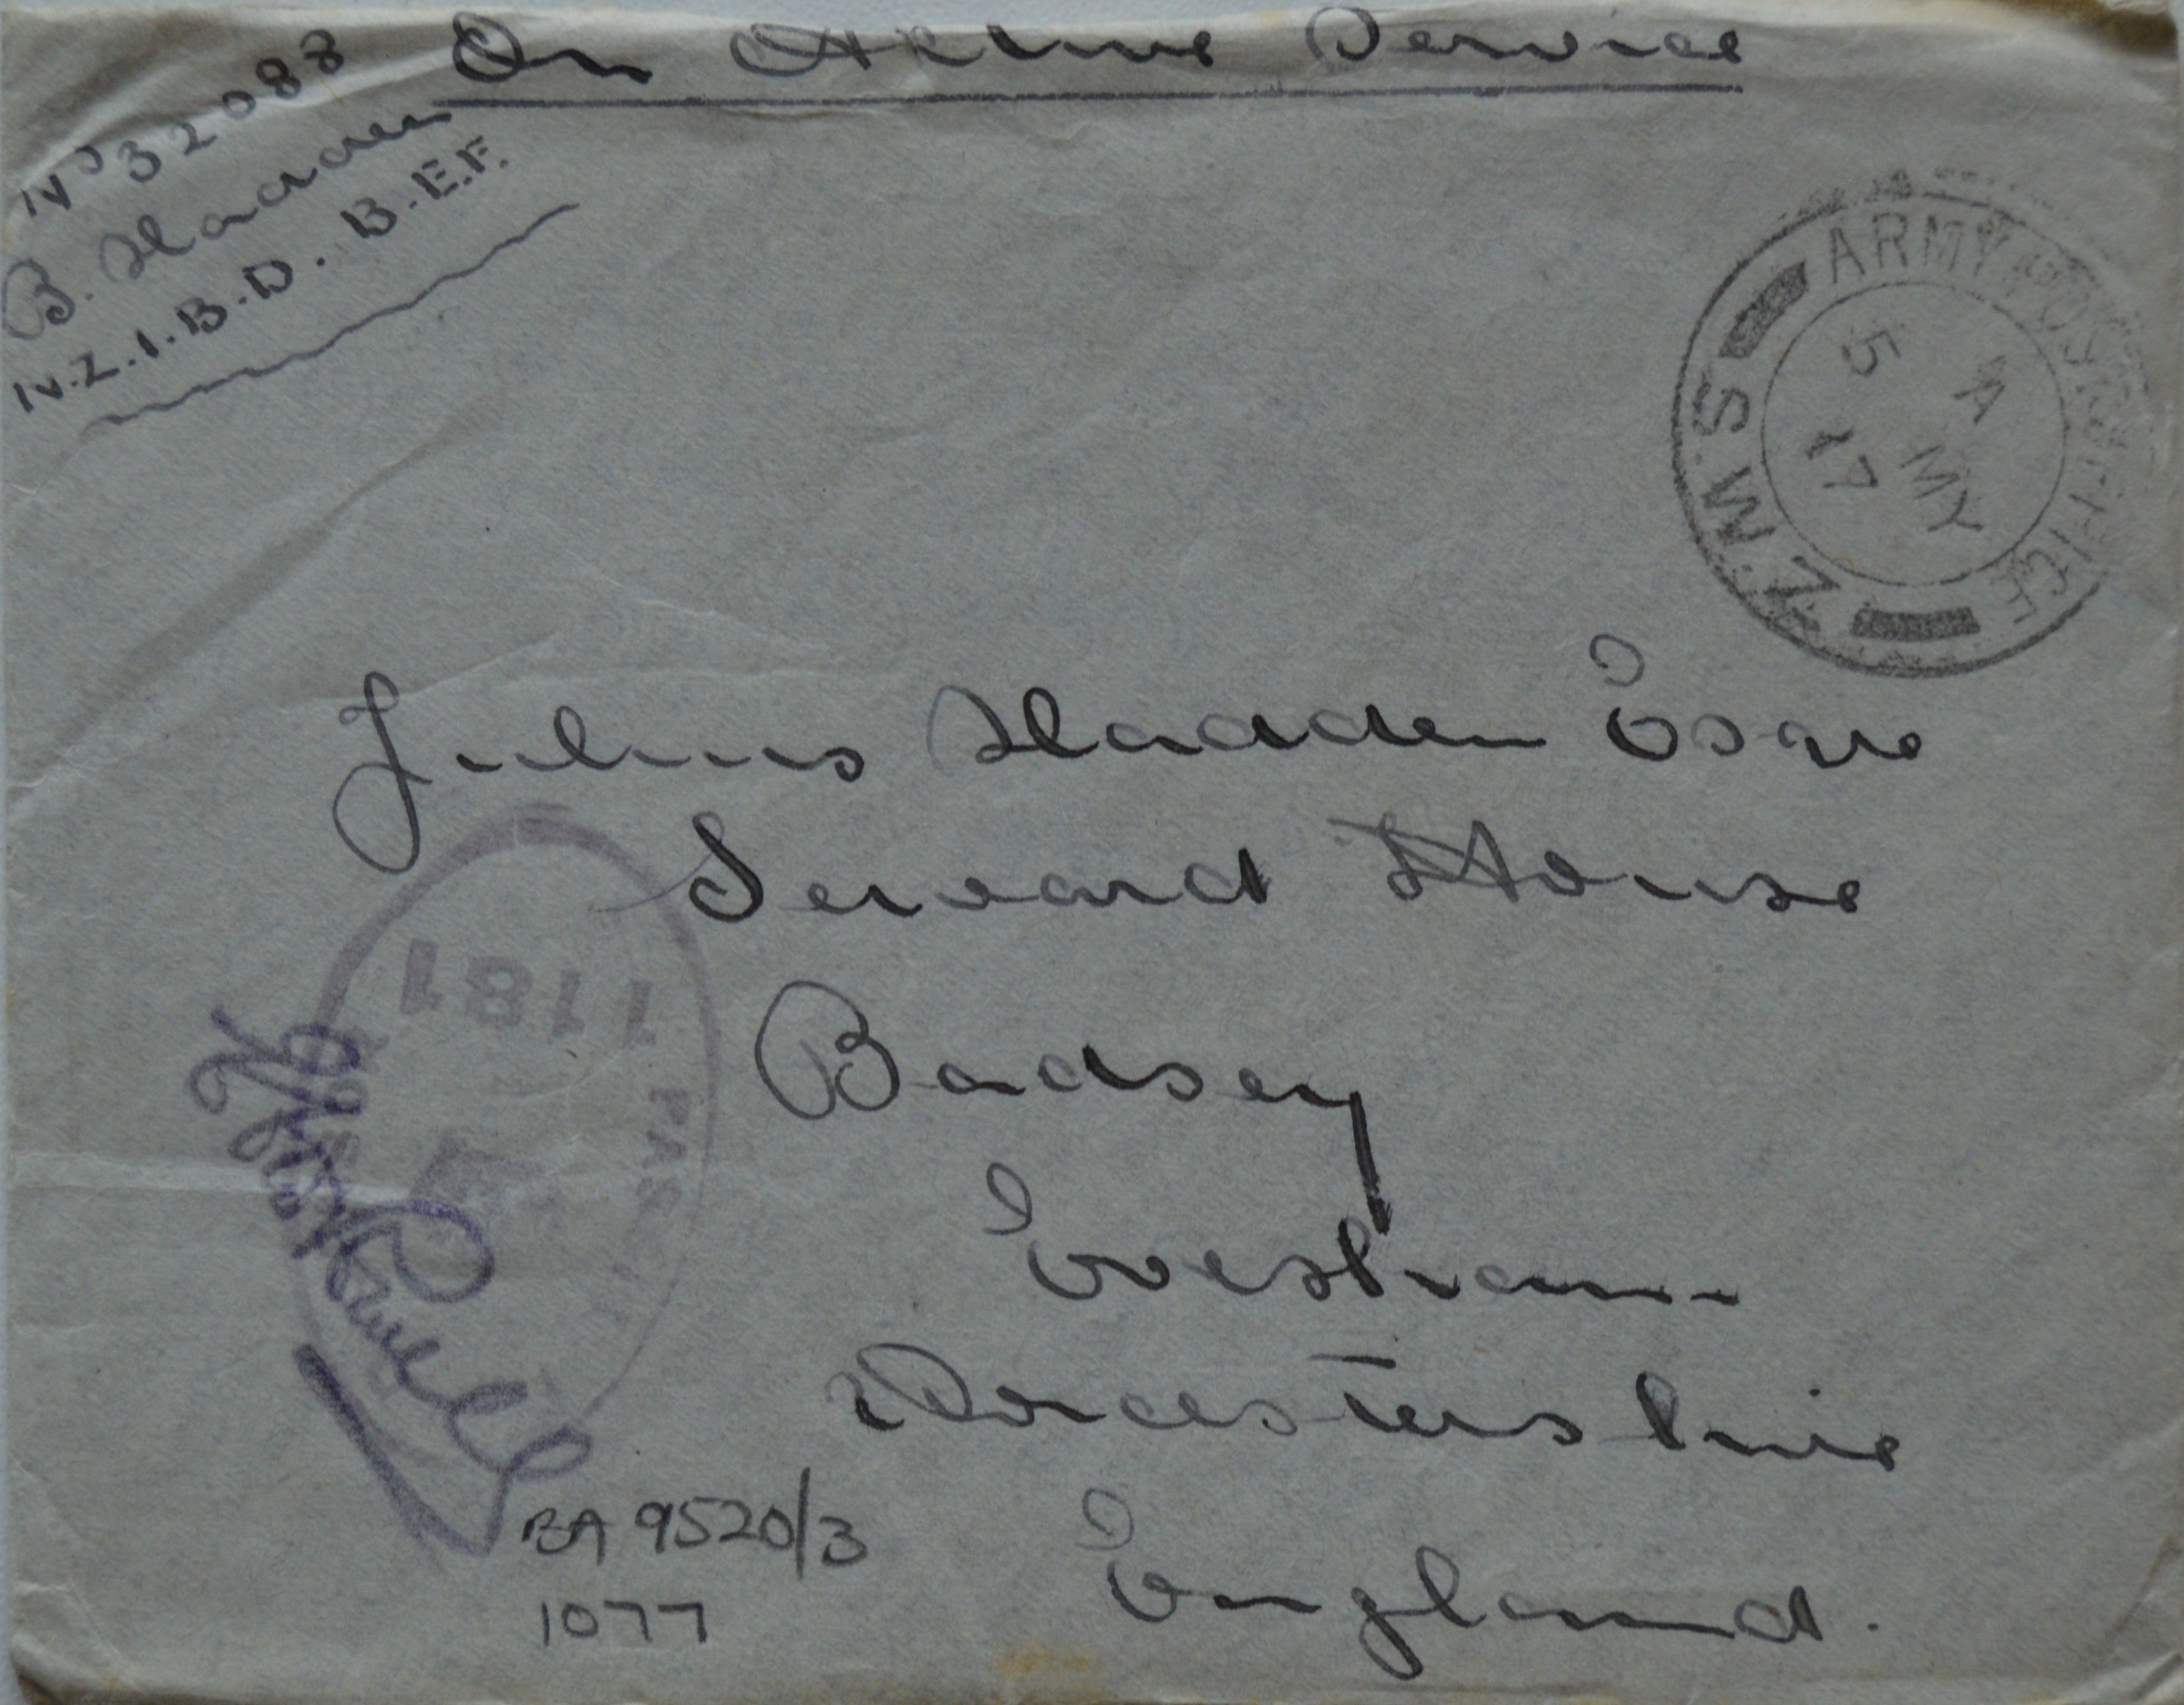 On Active Service
No 32088
B. Sladden
N.Z.I.B.D. B.E.F.
ARMY POST OFFICE
A
5 MY
17
Z.M.S.
Julius Sladden Esqre
Seward House
Badsey
Evesham
Worcestershire
England.
1181
BA 9520/3
1077